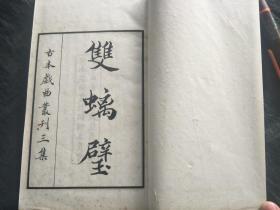 雙螭璧
古本戲曲叢刊三集